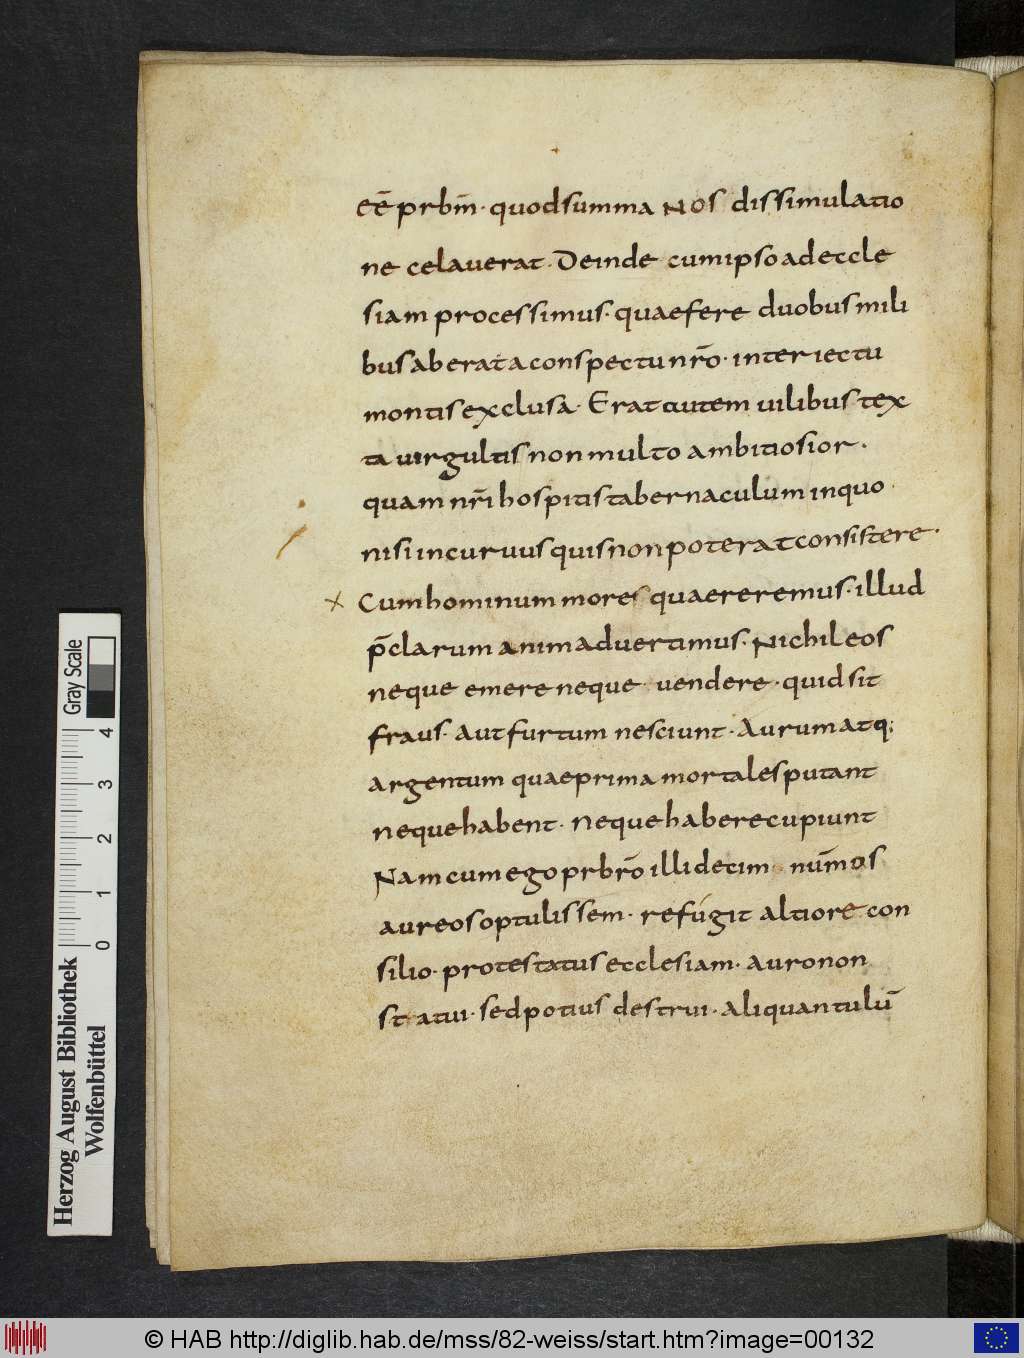 eē prbm̄· quod summa nos dissimulatio
ne celauerat· Deinde cum ipso ad eccle
siam processimus· quae fere duobus mili
bus aberat a conspectu nr̄o· interiectu
montis exclusa· Erat autem uilibus tex
ta uirgultis non multo ambitiosior·
quam nr̄i hospitis tabernaculum in quo
nisi incuruus quis non poterat consistere·
x Cum hominum mores quaereremus· illud
p̄clarum animaduertimus· Nichil eos
neque emere neque uendere· quid sit
fraus· Aut furtum nesciunt· Aurum atq;
argentum quae prima mortales putant
neque habent· neque habere cupiunt
Nam cum ego prbr̄o illi decim num̄os
aureos optulissem· refúgit altiore con
silio· protestatus ecclesiam· auro non
statui· sed potius destrui· aliquantulū
Herzog August Bibliothek
Wolfenbüttel
Gray Scale
0 1 2 3 4
© HAB http://diglib.hab.de/mss/82-weiss/start.htm?image=00132